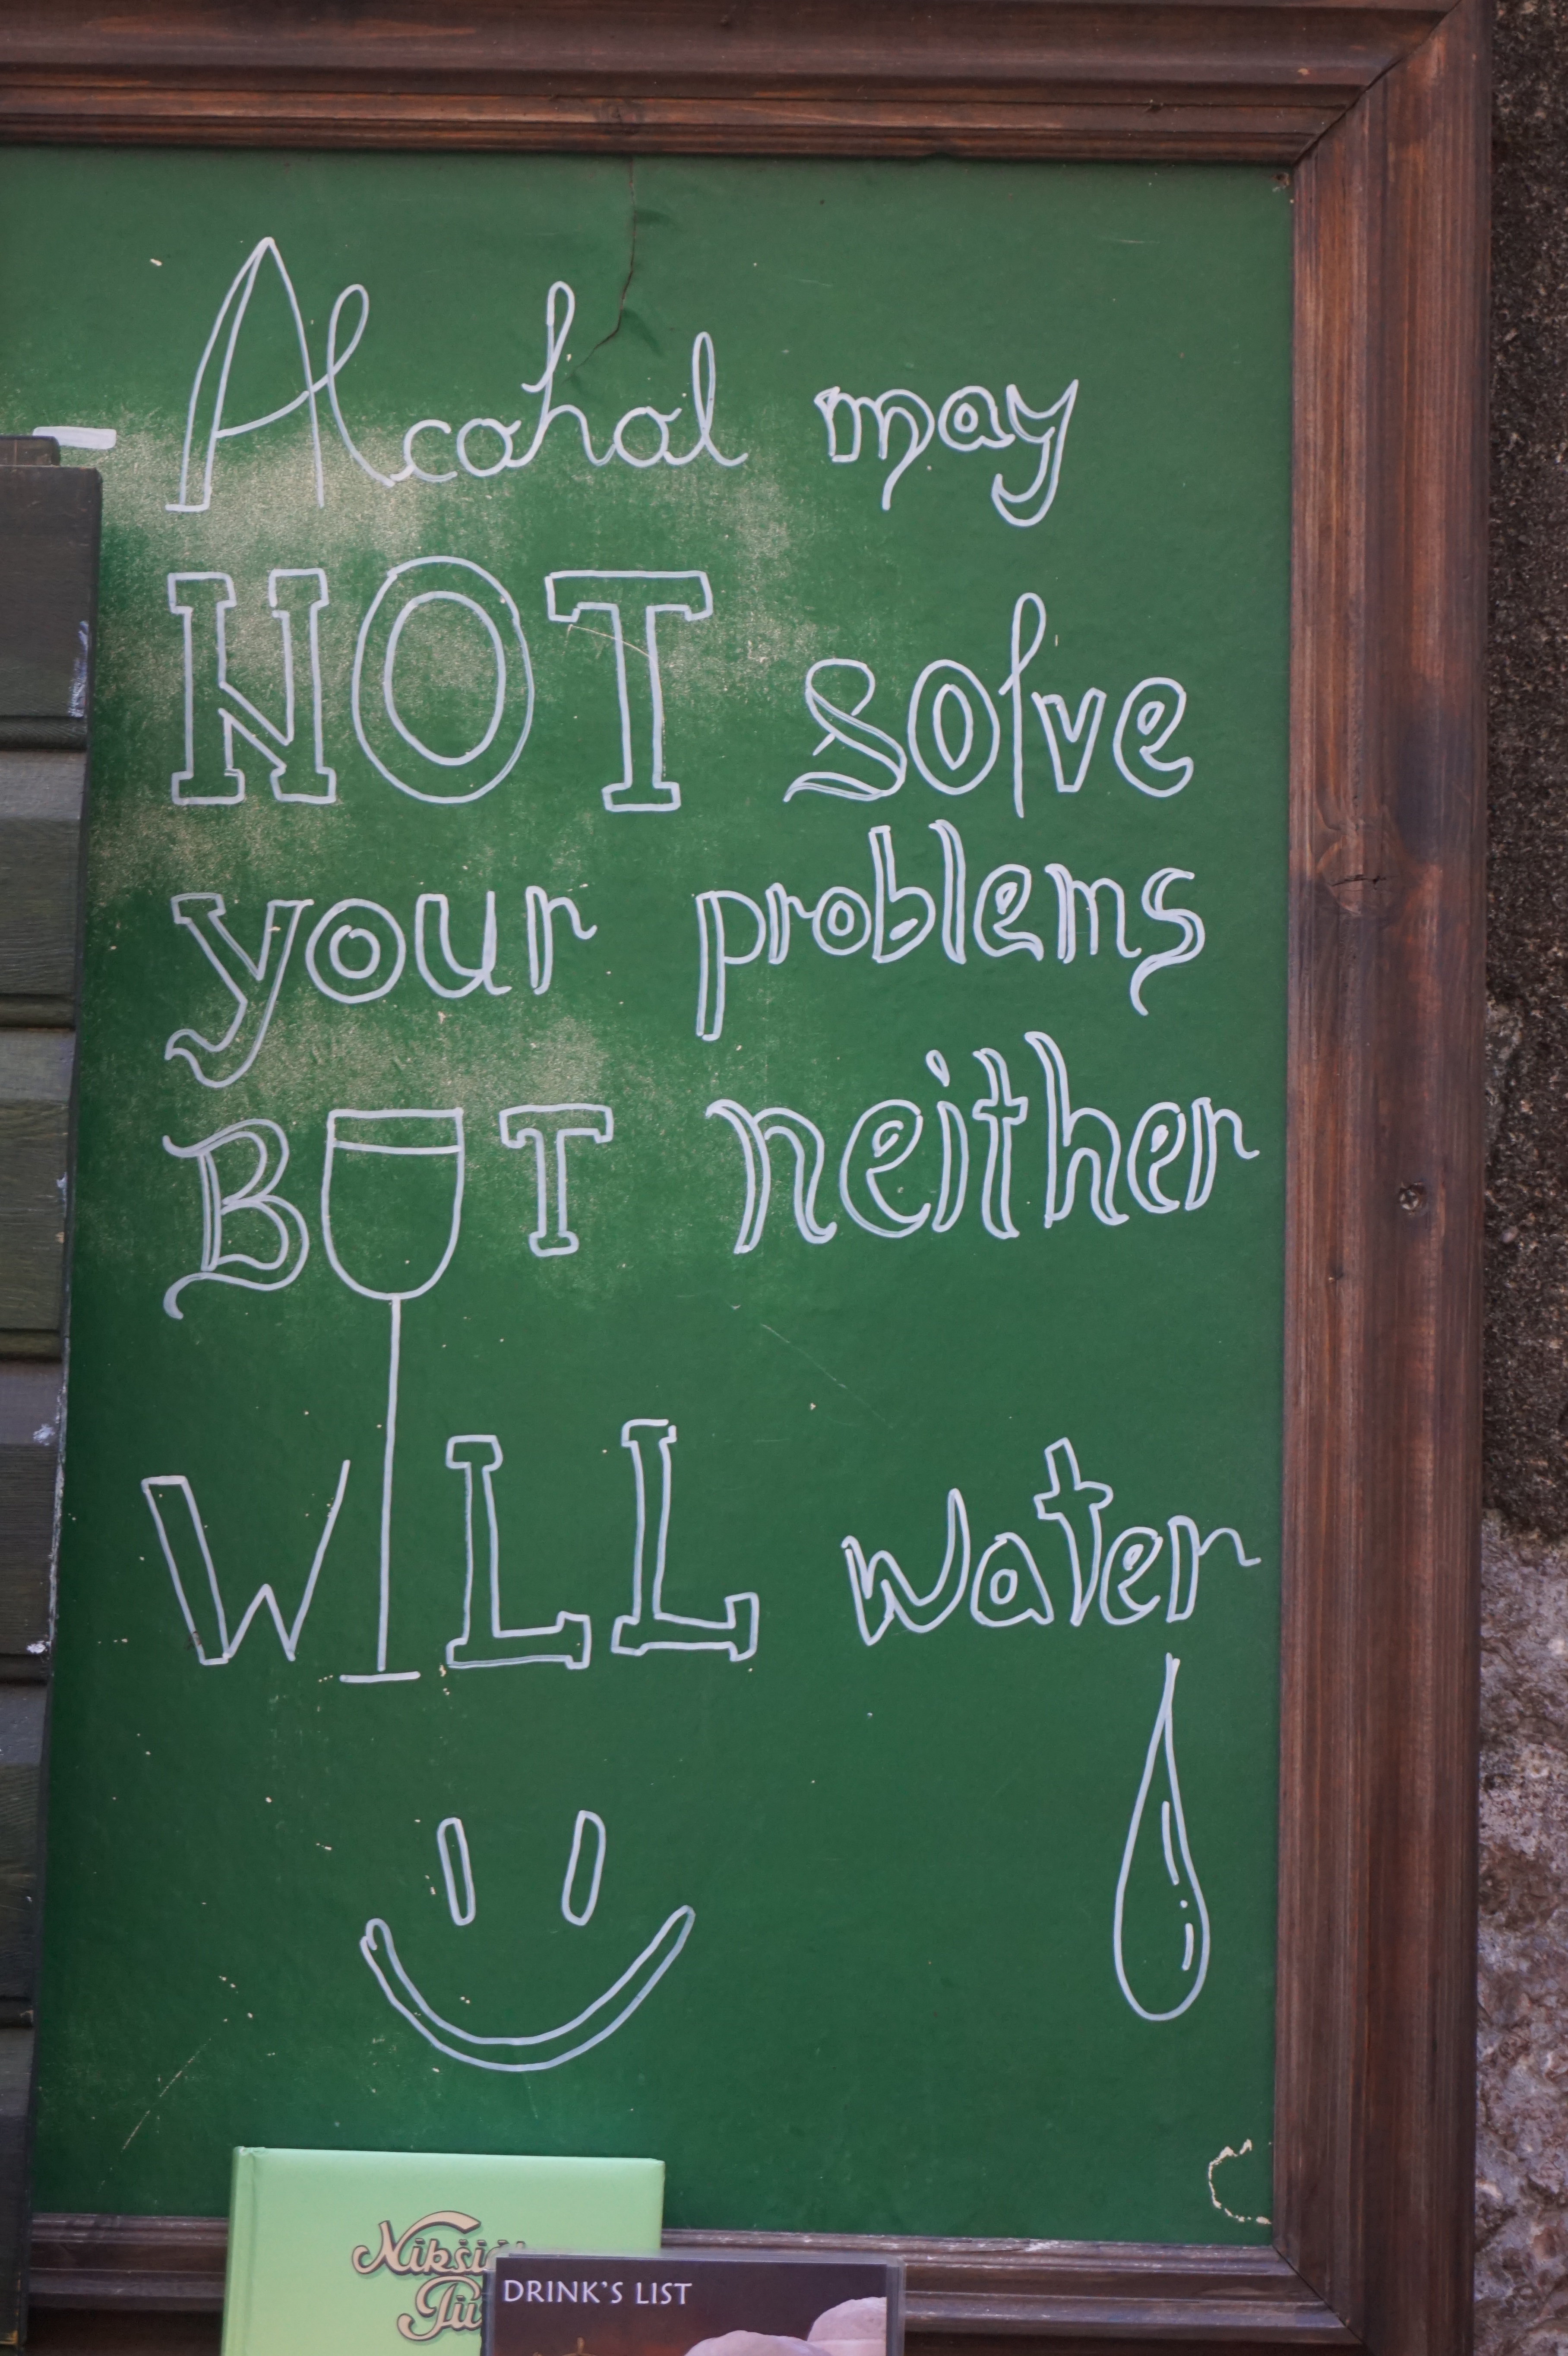 Alcohol may
NOT solve
your problems
BUT neither
WILL water
Nikšić
DRINK'S LIST